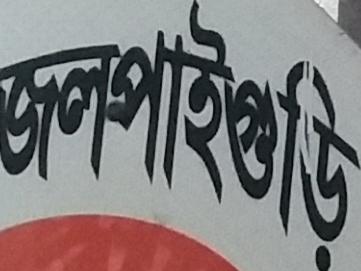 জলপাইগুড়ি